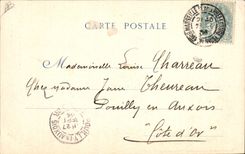 CARTE POSTALE
Mademoiselle Louise Charreau
Chez madame Jane Theureau
Pouilly en Auxois
Côte d'Or